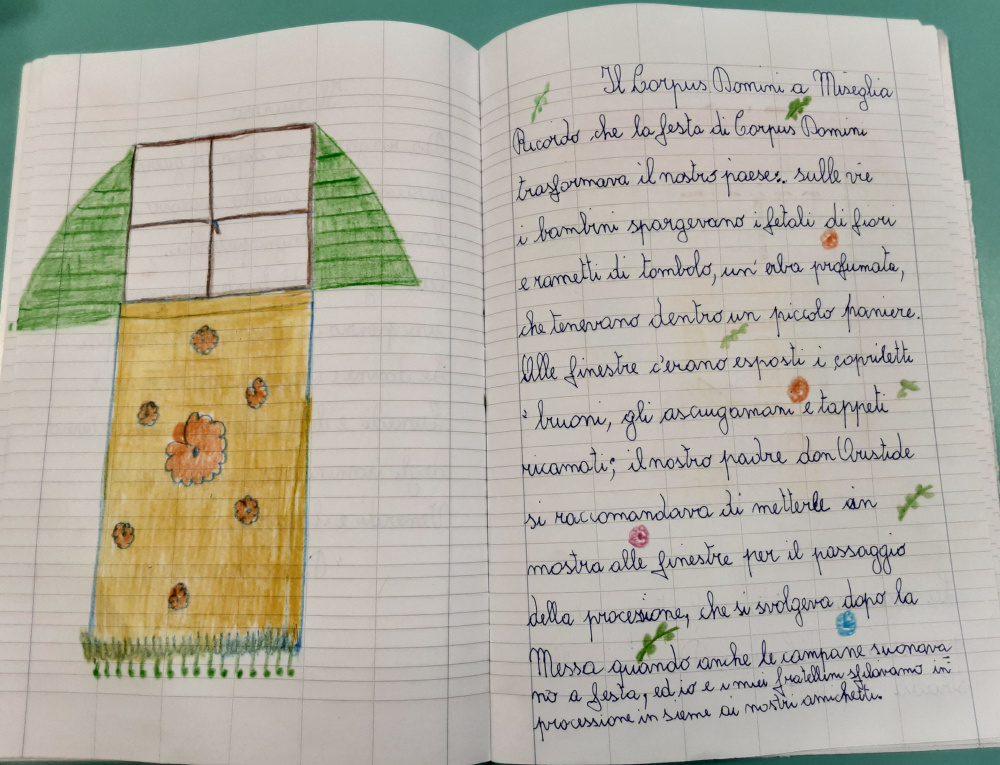 Il Corpus Domini a Miseglia
Ricordo che la festa di Corpus Domini
trasformava il nostro paese: sulle vie
i bambini spargevano i fetali di fiori
e rametti di tombolo, un'erba profumata,
che tenevano dentro un piccolo paniere.
Alle finestre c'erano esposti i copriletti
bruoni, gli asciugamani e tappeti
ricamati; il nostro padre don Aristide
si raccomandava di metterle in
mostra alle finestre per il passaggio
della processione, che si svolgeva dopo la
Messa quando anche le campane suonava=
no a festa, ed io e i miei fratellini sfilavamo in
processione insieme ai nostri amichetti.